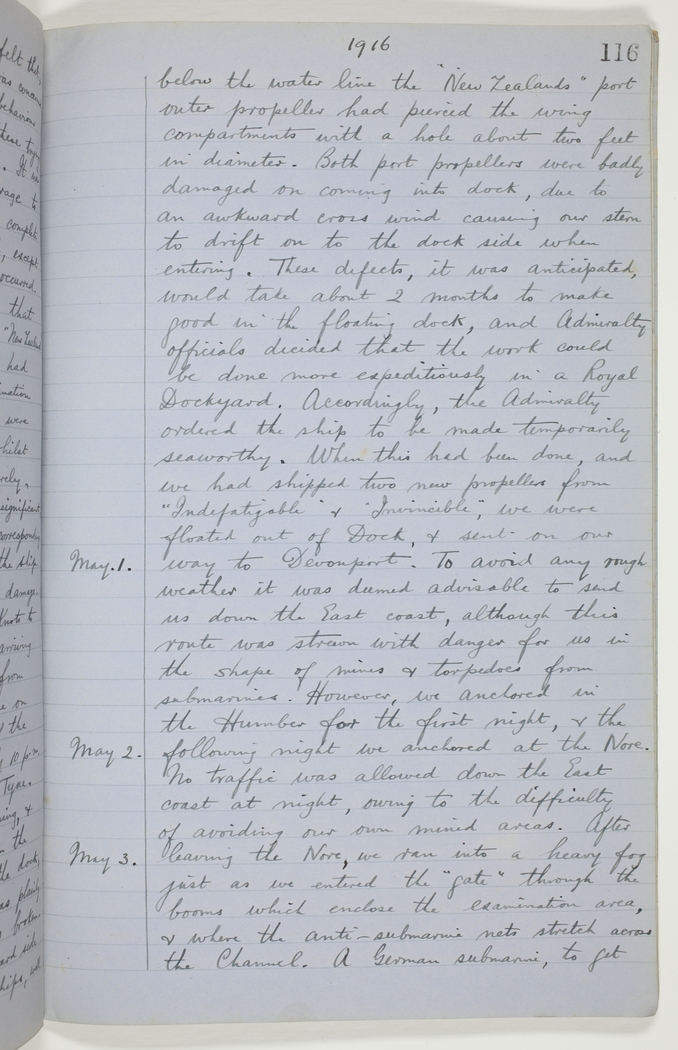 1916
116
below the water line the "New Zealands" port
outer propeller had pierced the wing
compartments with a hole about two feet
in diameter. Both port propellers were badly
damaged on coming into dock, due to
an awkward cross wind causing our stern
to drift on to the dock side when
entering. These defects, it was anticipated,
would take about 2 months to make
good in the floating dock, and Admiralty
officials decided that the work could
be done more expeditiously in a Royal
Dockyard. Accordingly, the Admiralty
ordered the ship to be made temporarily
seaworthy. When this had been done, and
we had shipped two new propellers from
"Indefatigable" & "Invincible", we were
floated out of Dock, & sent on our
May.1. way to Devonport. To avoid any rough
weather it was deemed advisable to send
us down the East coast, although this
route was strewn with danger for us in
the shape of mines & torpedoes from
submarines. However, we anchored in
the Humber for the first night, & the
May 2. following night we anchored at the Nore.
No traffic was allowed down the East
coast at night, owing to the difficulty
of avoiding our own mined areas. After
May 3. leaving the Nore, we ran into a heavy fog
just as we entered the "gate" through the
booms which enclose the examination area,
& where the anti-submarine nets stretch across
the Channel. A German submarine, to get